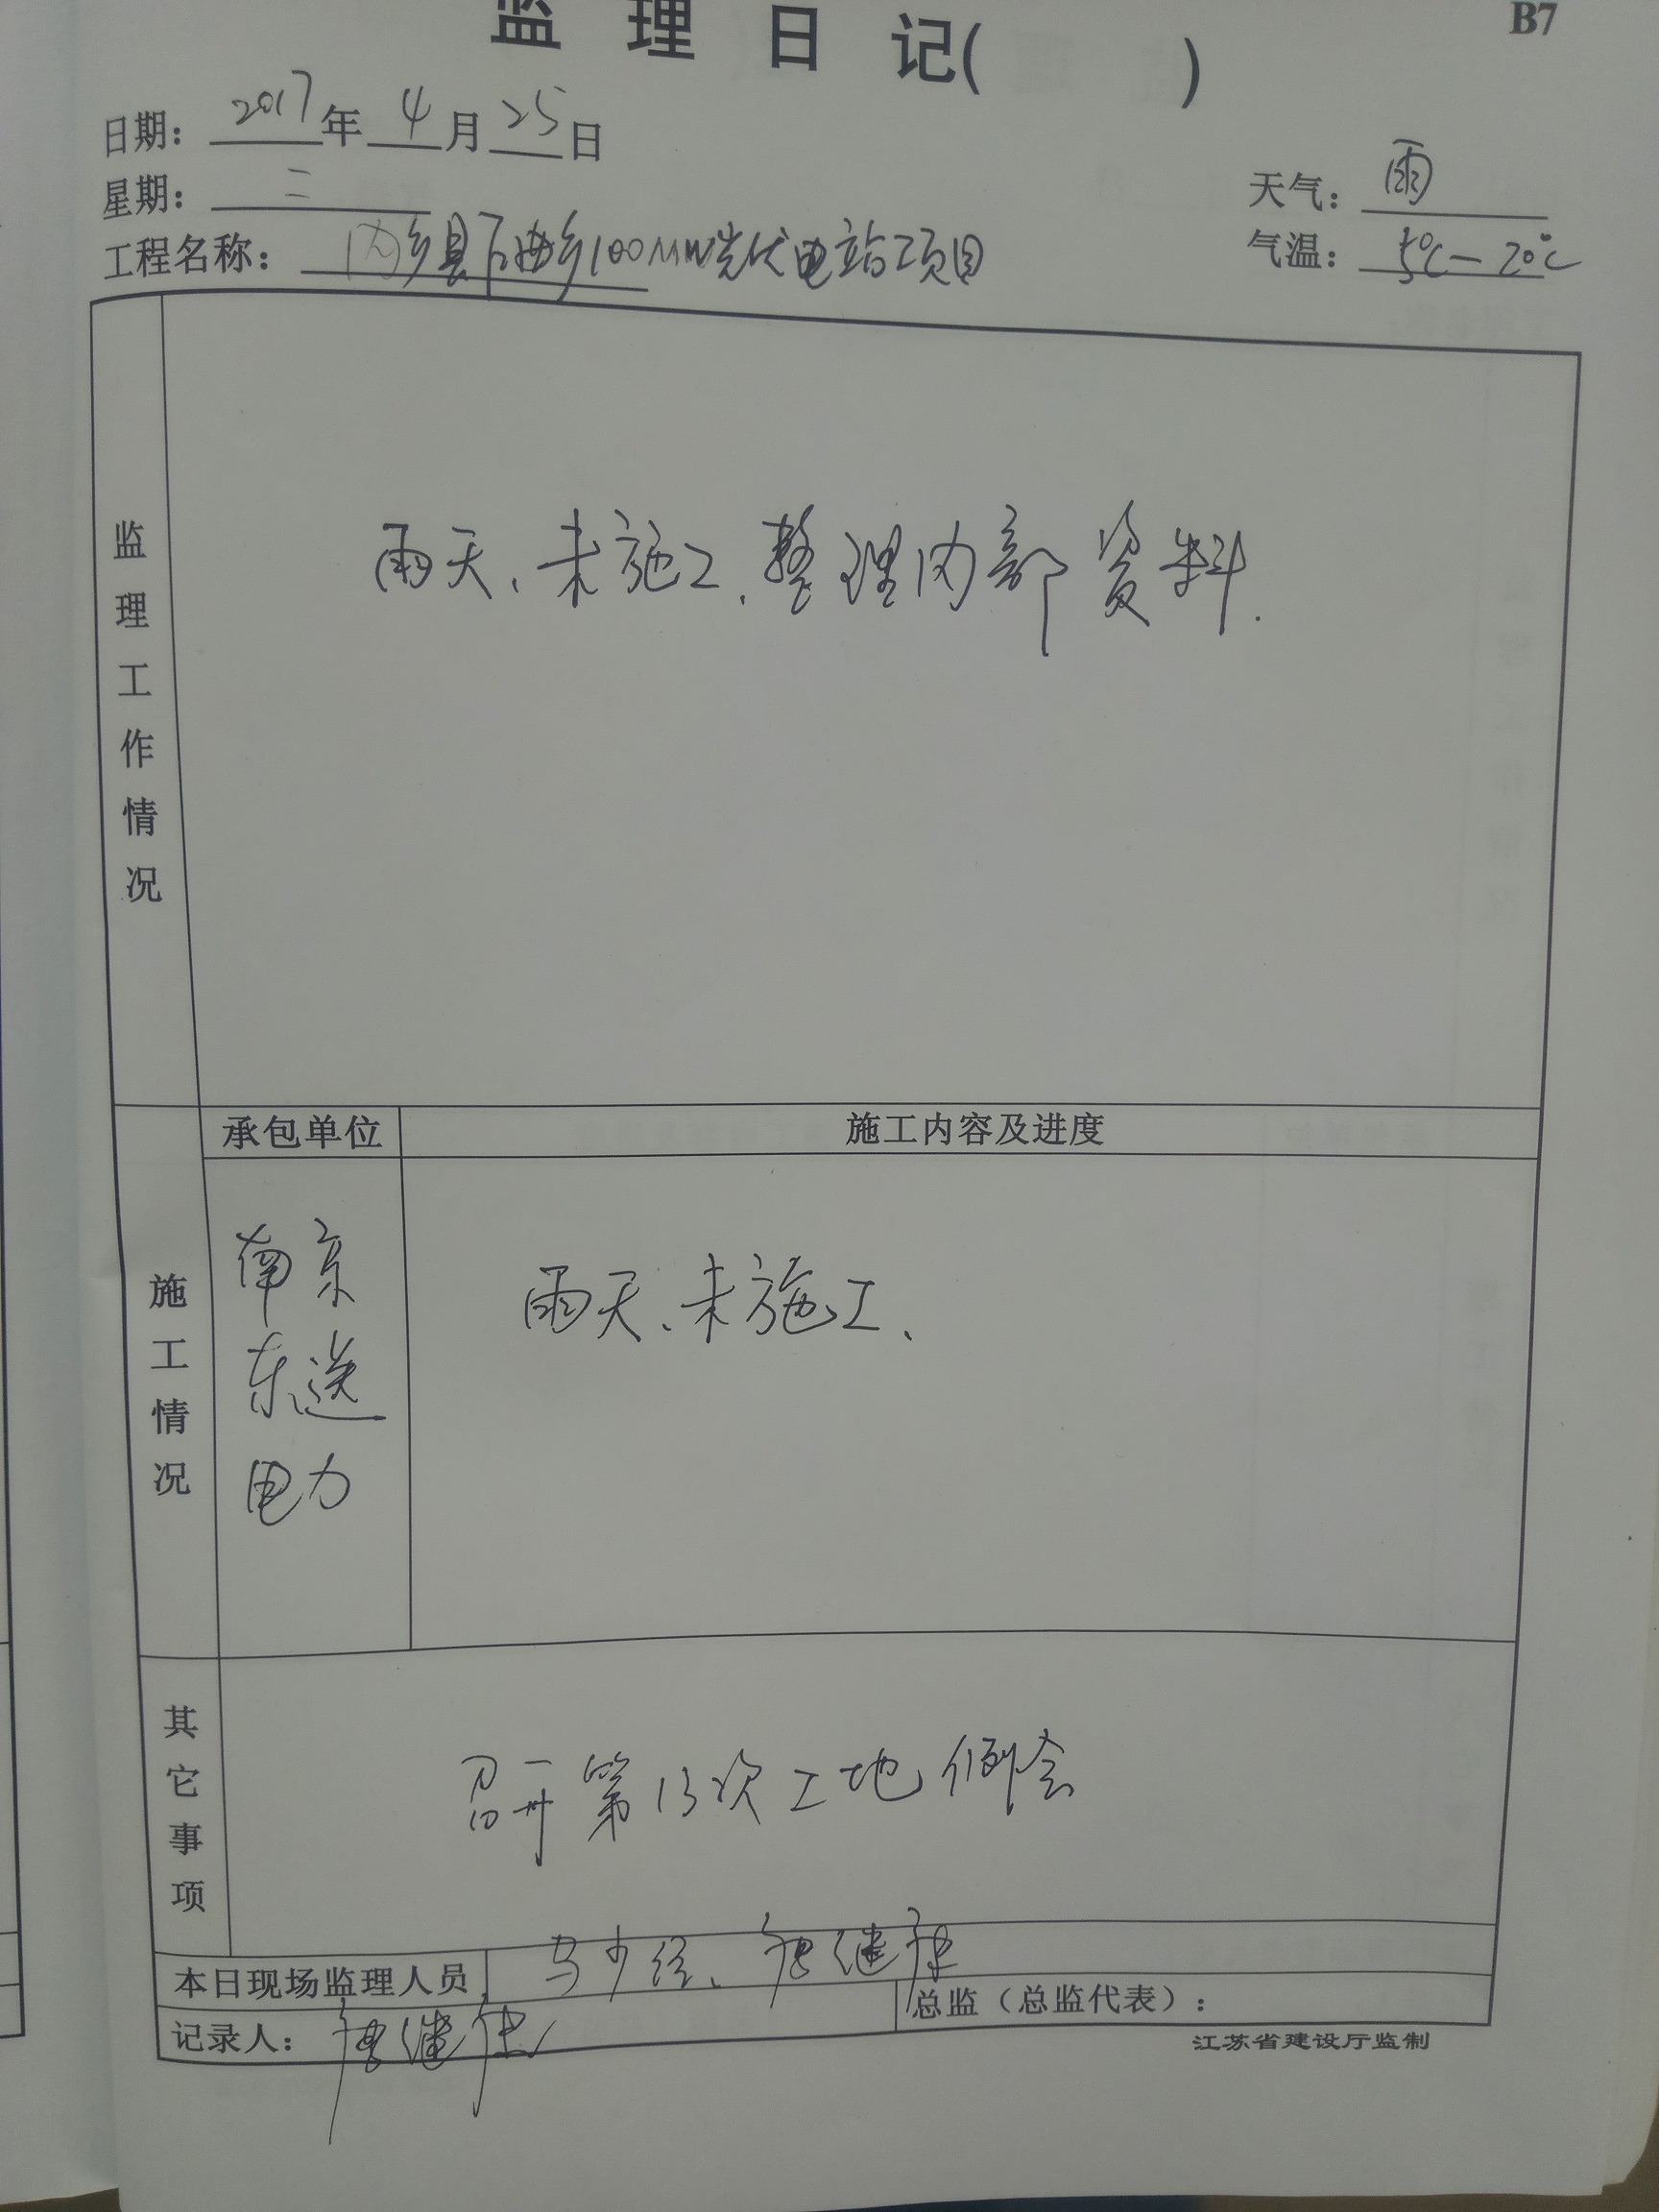 监理日记( )
B7
日期：2017年4月25日
星期：二
天气：雨
工程名称：内乡县下曲乡100MW光伏电站项目
气温：5℃—20℃
监理工作情况
雨天、未施工、整理内部资料.
承包单位
施工内容及进度
施工情况
南京
东送
电力
雨天、未施工、
其它事项
召开第13次工地例会
本日现场监理人员
马少
记录人：
总监（总监代表）：
江苏省建设厅监制